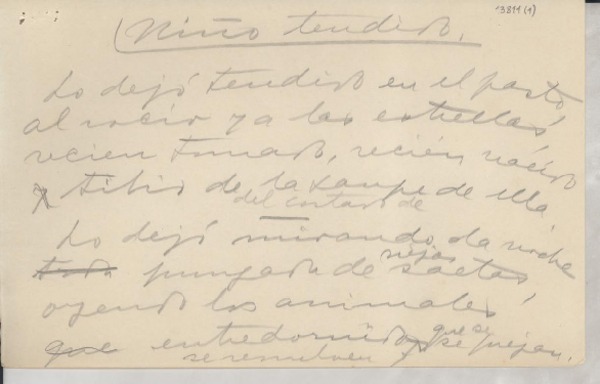 13811(1)
Niño tendido.
Lo dejó tendido en el pasto,
al rocío y a las estrellas,
recien tomado, recién nacido
y tibio de la sangre de ella
del costado de
Lo dejó mirando la noche
viejas
toda pungada de saetas,
oyendo los animales
que entredormidos y que se quejan.
se resuelven